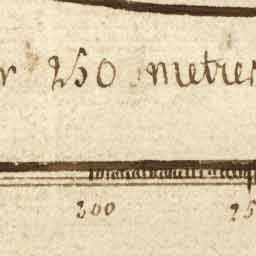 250 metres
200